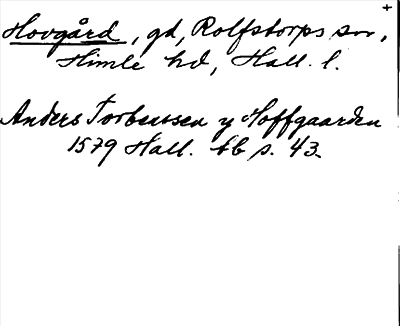 Hovgård, gd, Rolfstorps sn,
Himle hd, Hall. l.
Anders Torbenssen y Hoffgaarden
1579 Hall. tb s. 43.